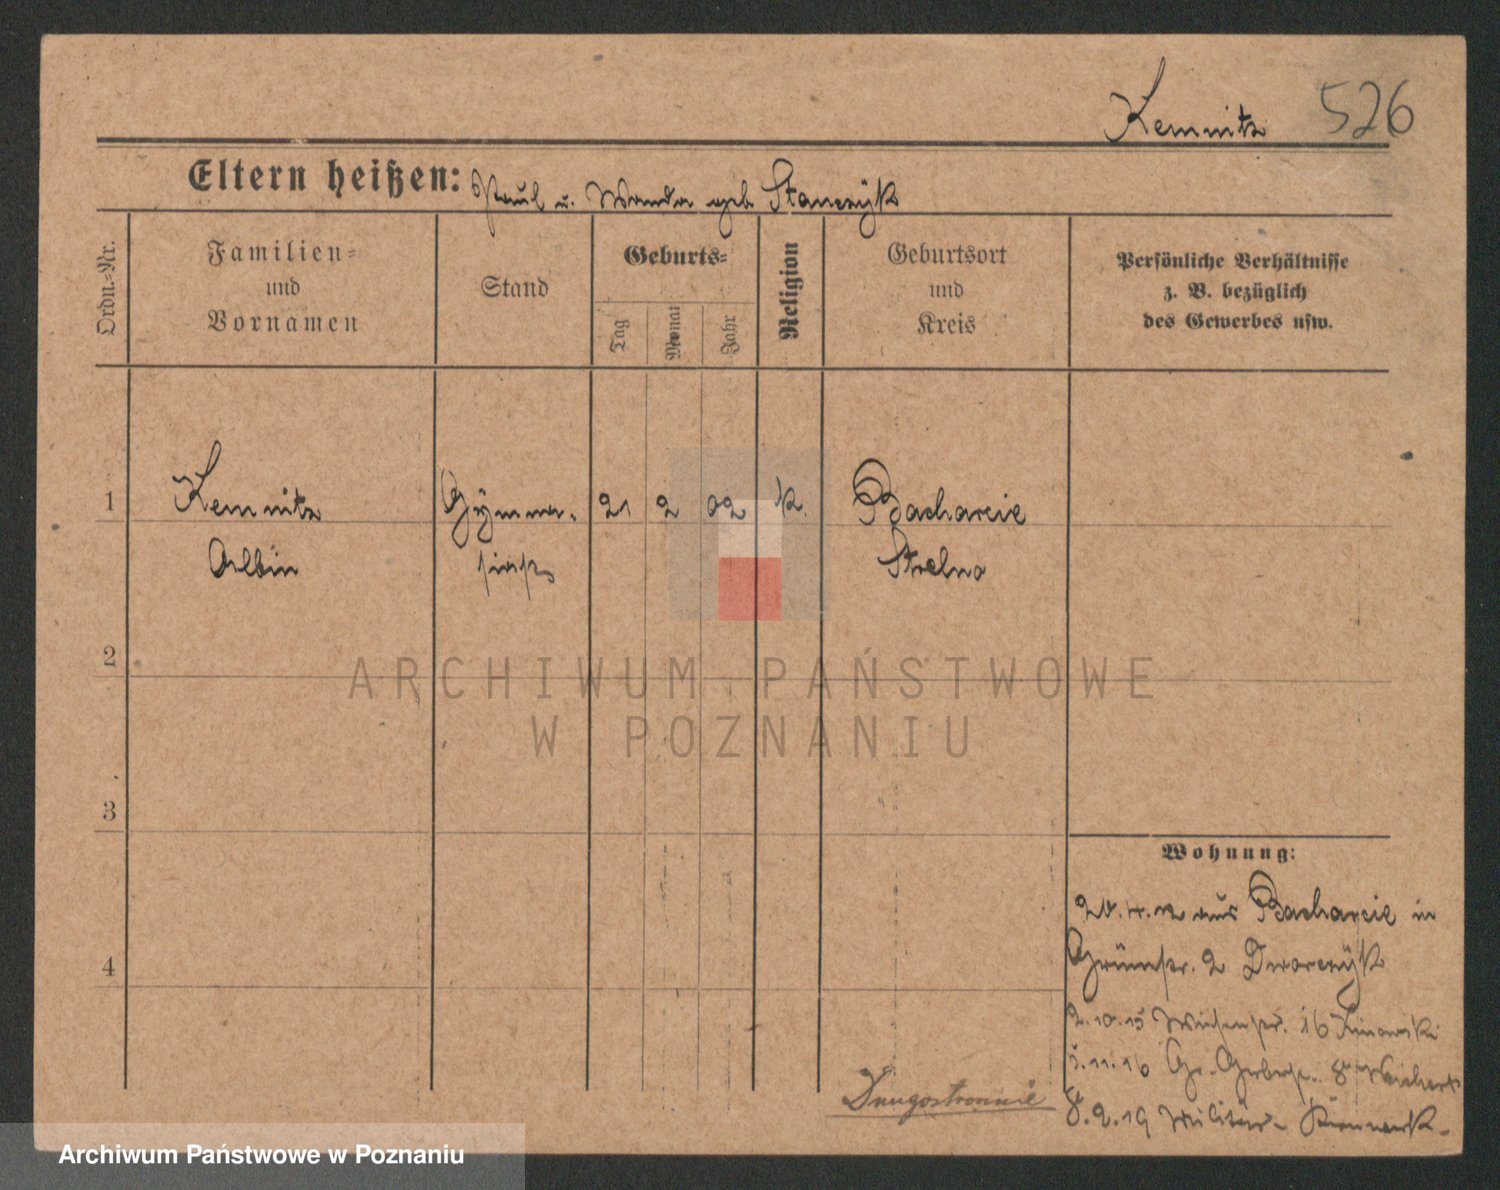 Kemnitz 526
Eltern heißen: Paul u. Wanda geb Stanczyk
Ordn.-Nr.
Familien-
und
Vornamen
Stand
Geburts-
Tag
Monat
Jahr
Religion
Geburtsort
und
Kreis
Persönliche Verhältnisse
z. B. bezüglich
des Gewerbes usw.
1 Kemnitz Gymna- 21 2 02 K. Bacharcie
Albin siast Strelno
2
ARCHIWUM PAŃSTWOWE
W POZNANIU
3
Wohnung:
20.4.12 aus Bacharcie in
4
Grünstr. 2 Dworczyk
2.10.15 Wiesenstr. 16
5.11.16 Gr. Gerberstr. 8
8.2.19 Militär-
Archiwum Państwowe w Poznaniu